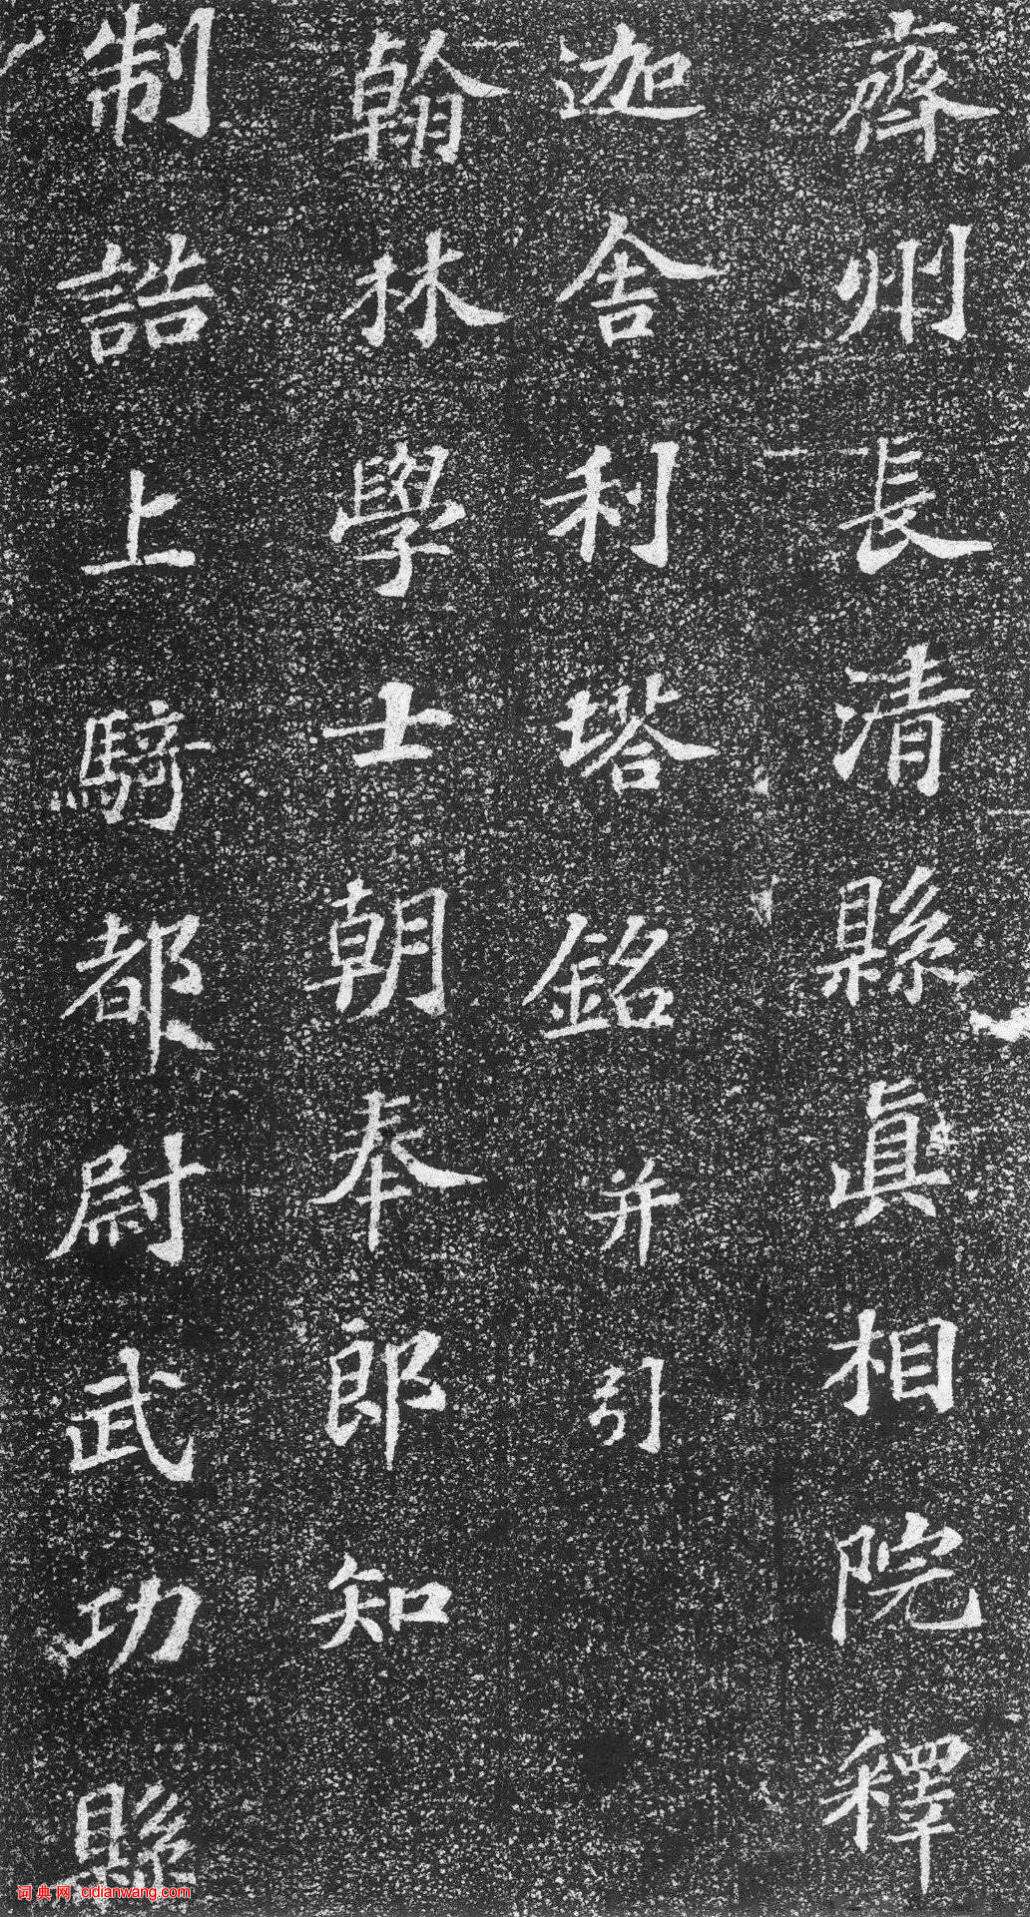 齊州長清縣眞相院釋
迦舍利塔銘并引
翰林學士朝奉郎知
制誥上騎都尉武功縣
词典网 cidianwang.com